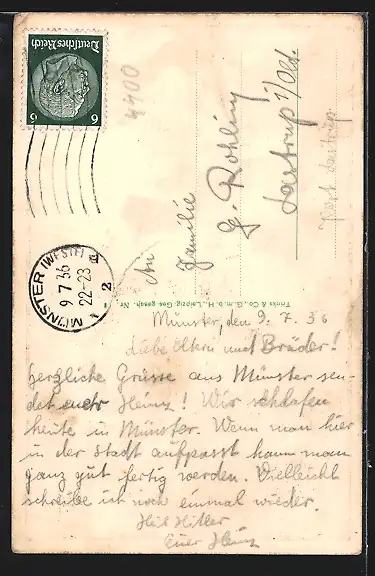 Deutsches Reich
6 6
4400
MÜNSTER (WESTF)
9 7 36
22-23
2
An
Familie
G. Rohling
Lastrup i/Old.
Post Lastrup
Trinks & Co., G.m.b.H., Leipzig. Ges. gesch. Nr.
Münster, den 9. 7. 36
Liebe Eltern und Brüder!
Herzliche Grüsse aus Münster sen-
det euch Heinz! Wir schlafen
heute in Münster. Wenn man hier
in der Stadt aufpasst kann man
ganz gut fertig werden. Vielleicht
schreibe ich noch einmal wieder.
Heil Hitler
Euer Heinz